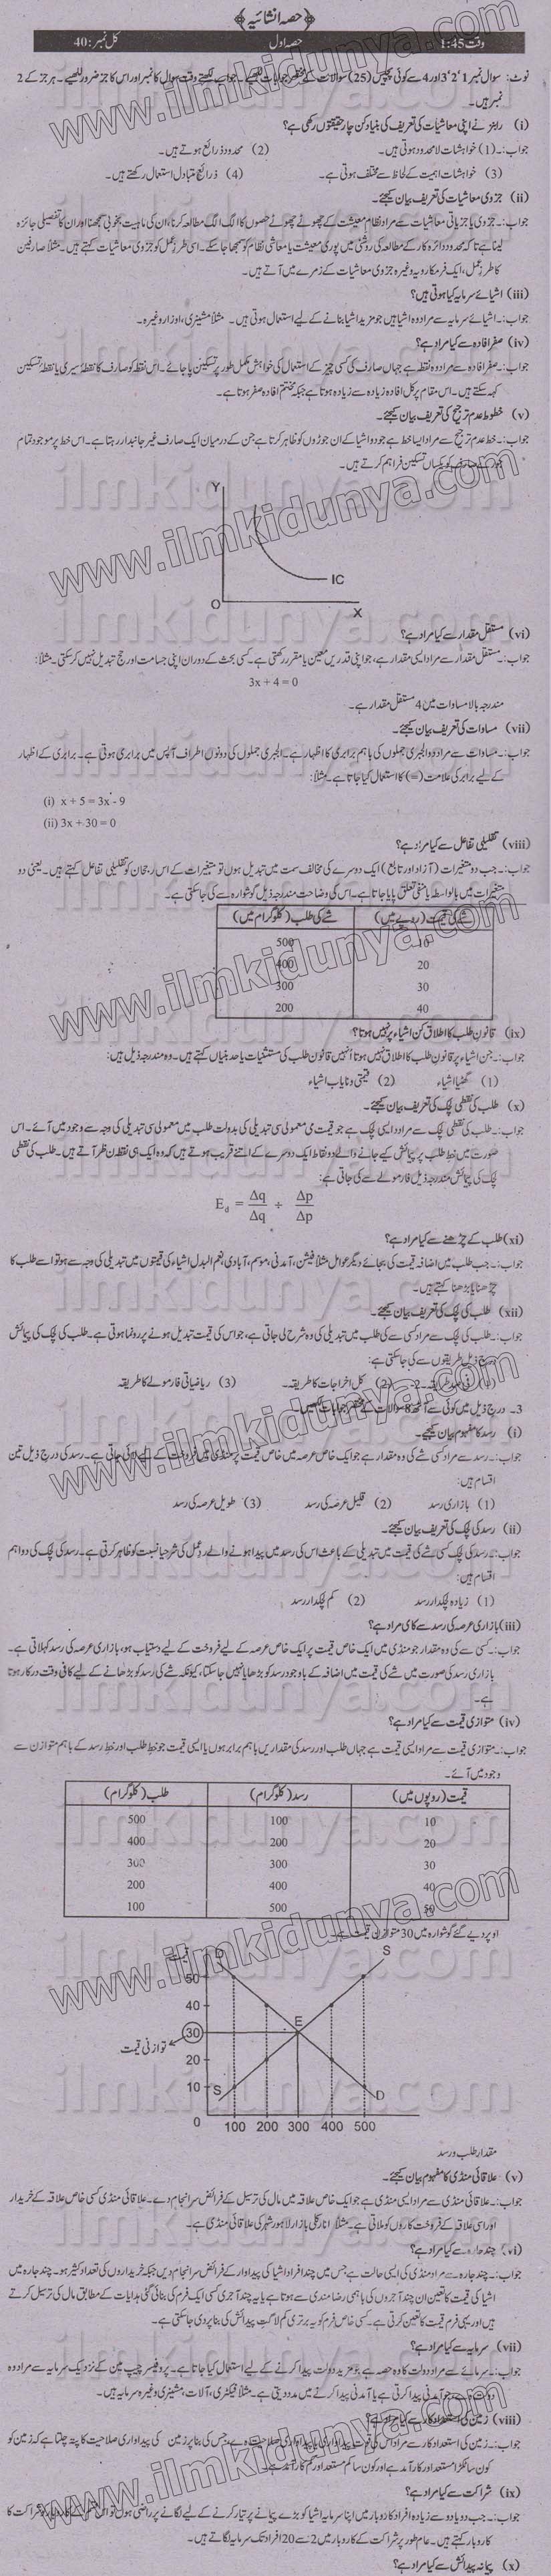 ﴿حصہ انشائیہ﴾
وقت 1:45 حصہ اول کل نمبر: 40
نوٹ: سوال نمبر 1، 2، 3 اور 4 سے کوئی پچیس (25) سوالات کے مختصر جوابات لکھیے۔ جواب لکھتے وقت سوال کا نمبر اور اس کا جز ضرور لکھیے۔ ہر جز کے 2
نمبر ہیں۔
(i) رابنز نے اپنی معاشیات کی تعریف کی بنیاد کن چار حقیقتوں پر رکھی ہے؟
جواب:۔ (1) خواہشات لامحدود ہوتی ہیں۔ (2) محدود ذرائع ہوتے ہیں۔
(3) خواہشات اہمیت کے لحاظ سے مختلف ہوتی ہے۔ (4) ذرائع متبادل استعمال رکھتے ہیں۔
(ii) جزوی معاشیات کی تعریف بیان کیجئے۔
جواب:۔ جزوی یا جزیاتی معاشیات سے مراد نظام معیشت کے چھوٹے چھوٹے حصوں کا الگ الگ مطالعہ کرنا، ان کی ماہیت بخوبی سمجھنا اور ان کا تفصیلی جائزہ
لینا ہے تاکہ محدود دائرہ کار کے مطالعہ کی روشنی میں پوری معیشت یا معاشی نظام کو سمجھا جا سکے۔ اسی طرز عمل کو جزوی معاشیات کہتے ہیں۔ مثلاً صارفین
کا طرز عمل، ایک فرم کا رویہ وغیرہ جزوی معاشیات کے زمرے میں آتے ہیں۔
(iii) اشیائے سرمایہ کیا ہوتی ہیں؟
جواب:۔ اشیائے سرمایہ سے مراد وہ اشیا ہیں جو مزید اشیا بنانے کے لیے استعمال ہوتی ہیں۔ مثلاً مشینری، اوزار وغیرہ۔
(iv) صفر افادہ سے کیا مراد ہے؟
جواب:۔ صفر افادہ سے مراد وہ نقطہ ہے جہاں صارف کی کسی چیز کے استعمال کی خواہش مکمل طور پر تسکین پا جائے۔ اس نقطہ کو صارف کا نقطۂ سیری یا نقطۂ تسکین
کہہ سکتے ہیں۔ اس مقام پر کل افادہ زیادہ سے زیادہ ہوتا ہے جبکہ مختتم افادہ صفر ہوتا ہے۔
(v) خطوط عدم ترجیح کی تعریف بیان کیجئے۔
جواب:۔ خط عدم ترجیح سے مراد ایسا خط ہے جو دو اشیا کے ان جوڑوں کو ظاہر کرتا ہے جن کے درمیان ایک صارف غیر جانبدار رہتا ہے۔ اس خط پر موجود تمام
جوڑے صارف کو یکساں تسکین فراہم کرتے ہیں۔
Y
IC
O
X
(vi) مستقل مقدار سے کیا مراد ہے؟
جواب:۔ مستقل مقدار سے مراد ایسی مقدار ہے، جو اپنی قدریں معین یا مقرر رکھتی ہے۔ کسی بحث کے دوران اپنی جسامت اور حجم تبدیل نہیں کر سکتی۔ مثلاً:
3x + 4 = 0
مندرجہ بالا مساوات میں 4 مستقل مقدار ہے۔
(vii) مساوات کی تعریف بیان کیجئے۔
جواب:۔ مساوات سے مراد دو الجبری جملوں کی باہم برابری کا اظہار ہے۔ الجبری جملوں کی دونوں اطراف آپس میں برابری ہوتی ہے۔ برابری کے اظہار
کے لیے برابر کی علامت (=) کا استعمال کیا جاتا ہے۔ مثلاً:
(i) x + 5 = 3x - 9
(ii) 3x + 30 = 0
(viii) تقلیلی تفاعل سے کیا مراد ہے؟
جواب:۔ جب دو متغیرات (آزاد اور تابع) ایک دوسرے کی مخالف سمت میں تبدیل ہوں تو متغیرات کے اس رجحان کو تقلیلی تفاعل کہتے ہیں۔ یعنی دو
متغیرات میں بالواسطہ یا منفی تعلق پایا جاتا ہے۔ اس کی وضاحت مندرجہ ذیل گوشوارہ سے کی جا سکتی ہے۔
شے کی قیمت (روپے میں) شے کی طلب (کلوگرام میں)
10 500
20 400
30 300
40 200
(ix) قانون طلب کا اطلاق کن اشیاء پر نہیں ہوتا؟
جواب:۔ جن اشیاء پر قانون طلب کا اطلاق نہیں ہوتا انہیں قانون طلب کی مستثنیات یا حد بندیاں کہتے ہیں۔ وہ مندرجہ ذیل ہیں:
(1) گھٹیا اشیاء (2) قیمتی و نایاب اشیاء
(x) طلب کی نقطی لچک کی تعریف بیان کیجئے۔
جواب:۔ طلب کی نقطی لچک سے مراد ایسی لچک ہے جو قیمت میں معمولی سی تبدیلی کی بدولت طلب میں معمولی سی تبدیلی کی وجہ سے وجود میں آئے۔ اس
صورت میں خط طلب پر پیمائش کیے جانے والے دو نقاط ایک دوسرے کے اتنے قریب ہوتے ہیں کہ وہ ایک ہی نقطہ نظر آتے ہیں۔ طلب کی نقطی
لچک کی پیمائش مندرجہ ذیل فارمولے سے کی جاتی ہے:
Ed = Δq/Δq ÷ Δp/Δp
(xi) طلب کے چڑھنے سے کیا مراد ہے؟
جواب:۔ جب طلب میں اضافہ قیمت کی بجائے دیگر عوامل مثلاً فیشن، آمدنی، موسم، آبادی، نعم البدل اشیاء کی قیمتوں میں تبدیلی کی وجہ سے ہو تو اسے طلب کا
چڑھنا یا بڑھنا کہتے ہیں۔
(xii) طلب کی لچک کی تعریف بیان کیجئے۔
جواب:۔ طلب کی لچک سے مراد کسی شے کی طلب میں تبدیلی کی وہ شرح لی جاتی ہے، جو اس کی قیمت تبدیل ہونے پر رونما ہوتی ہے۔ طلب کی لچک کی پیمائش
درج ذیل طریقوں سے کی جا سکتی ہے:
(2) کل اخراجات کا طریقہ۔ (3) ریاضیاتی فارمولے کا طریقہ
3۔ درج ذیل میں کوئی سے آٹھ 8 سوالات کے مختصر جوابات لکھیں۔
(i) رسد کا مفہوم بیان کیجئے۔
جواب:۔ رسد سے مراد کسی شے کی وہ مقدار ہے جو ایک خاص عرصہ میں خاص قیمت پر منڈی میں فروخت کے لیے لائی جاتی ہے۔ رسد کی درج ذیل تین
اقسام ہیں:
(1) بازاری رسد (2) قلیل عرصہ کی رسد (3) طویل عرصہ کی رسد
(ii) رسد کی لچک کی تعریف بیان کیجئے۔
جواب:۔ رسد کی لچک کسی شے کی قیمت میں تبدیلی کے باعث اس کی رسد میں پیدا ہونے والے ردعمل کی شرح یا نسبت کو ظاہر کرتی ہے۔ رسد کی لچک کی دو اہم
اقسام ہیں:
(1) زیادہ لچکدار رسد (2) کم لچکدار رسد
(iii) بازاری عرصہ کی رسد سے کیا مراد ہے؟
جواب:۔ کسی شے کی وہ مقدار جو منڈی میں ایک خاص قیمت پر ایک خاص عرصہ کے لیے فروخت کے لیے دستیاب ہو، بازاری عرصہ کی رسد کہلاتی ہے۔
بازاری رسد کی صورت میں شے کی قیمت میں اضافہ کے باوجود رسد کو بڑھایا نہیں جا سکتا، کیونکہ شے کی رسد کو بڑھانے کے لیے کافی وقت درکار ہوتا
ہے۔
(iv) متوازی قیمت سے کیا مراد ہے؟
جواب:۔ متوازی قیمت سے مراد ایسی قیمت ہے جہاں طلب اور رسد کی مقداریں باہم برابر ہوں یا ایسی قیمت جو خط طلب اور خط رسد کے باہم متوازن سے
وجود میں آئے۔
قیمت (روپوں میں) رسد (کلوگرام) طلب (کلوگرام)
10 100 500
20 200 400
30 300 300
40 400 200
50 500 100
اوپر دیے گئے گوشوارہ میں 30 متوازن قیمت ہے۔
قیمت
D
S
50
40
30
20
10
0
E
S
D
توازنی قیمت
100 200 300 400 500
مقدار طلب و رسد
(v) علاقائی منڈی کا مفہوم بیان کیجئے۔
جواب:۔ علاقائی منڈی سے مراد ایسی منڈی ہے جو ایک خاص علاقہ میں مال کی ترسیل کے فرائض سر انجام دے۔ علاقائی منڈی کسی خاص علاقہ کے خریدار
اور اسی علاقہ کے فروخت کاروں کو ملاتی ہے۔ مثلاً انارکلی بازار لاہور شہر کی علاقائی منڈی ہے۔
(vi) چند اجارہ سے کیا مراد ہے؟
جواب:۔ چند اجارہ سے مراد منڈی کی ایسی حالت ہے جس میں چند افراد اشیا کی پیداوار کے فرائض سر انجام دیں جبکہ خریداروں کی تعداد کثیر ہو۔ چند اجارہ میں
اشیا کی قیمت کا تعین ان چند آجروں کی باہمی رضا مندی سے ہوتا ہے یا یہ چند آجر کسی ایک فرم کی بنائی گئی ہدایات کے مطابق مال کی ترسیل کرتے
ہیں اور یہی فرم قیمت کا تعین کرتی ہے۔ کسی خاص فرم کو یہ برتری کم لاگت پیدائش کی بنا پر دی جا سکتی ہے۔
(vii) سرمایہ سے کیا مراد ہے؟
جواب:۔ سرمائے سے مراد دولت کا وہ حصہ ہے جو مزید دولت پیدا کرنے کے لیے استعمال کیا جاتا ہے۔ پروفیسر چیپ مین کے نزدیک سرمایہ سے مراد وہ
دولت ہے جو آمدنی پیدا کرتی ہے یا آمدنی پیدا کرنے میں مدد دیتی ہے۔ مثلاً فیکٹری، آلات، مشینری وغیرہ سرمایہ ہیں۔
(viii) زمین کی استعداد کار سے کیا مراد ہے؟
جواب:۔ زمین کی استعداد کار سے مراد اس کی قوت پیداواری یا پیداواری صلاحیت ہے، جس کی بنا پر زمین کی پیداواری صلاحیت کا پتہ چلتا ہے کہ زمین کو
کون سا ٹکڑا مستعد اور کارآمد ہے اور کون سا کم مستعد اور کم کارآمد ہے۔
(ix) شراکت سے کیا مراد ہے؟
جواب:۔ جب دو یا دو سے زیادہ افراد کاروبار میں اپنا سرمایہ اشیا کو بڑے پیمانے پر تیار کرنے کے لیے لگانے پر راضی ہوں تو اس کاروبار کو شراکت کا
کاروبار کہتے ہیں۔ عام طور پر شراکت کے کاروبار میں 2 سے 20 افراد تک سرمایہ لگاتے ہیں۔
(x) پیمانہ پیدائش سے کیا مراد ہے؟
www.ilmkidunya.com